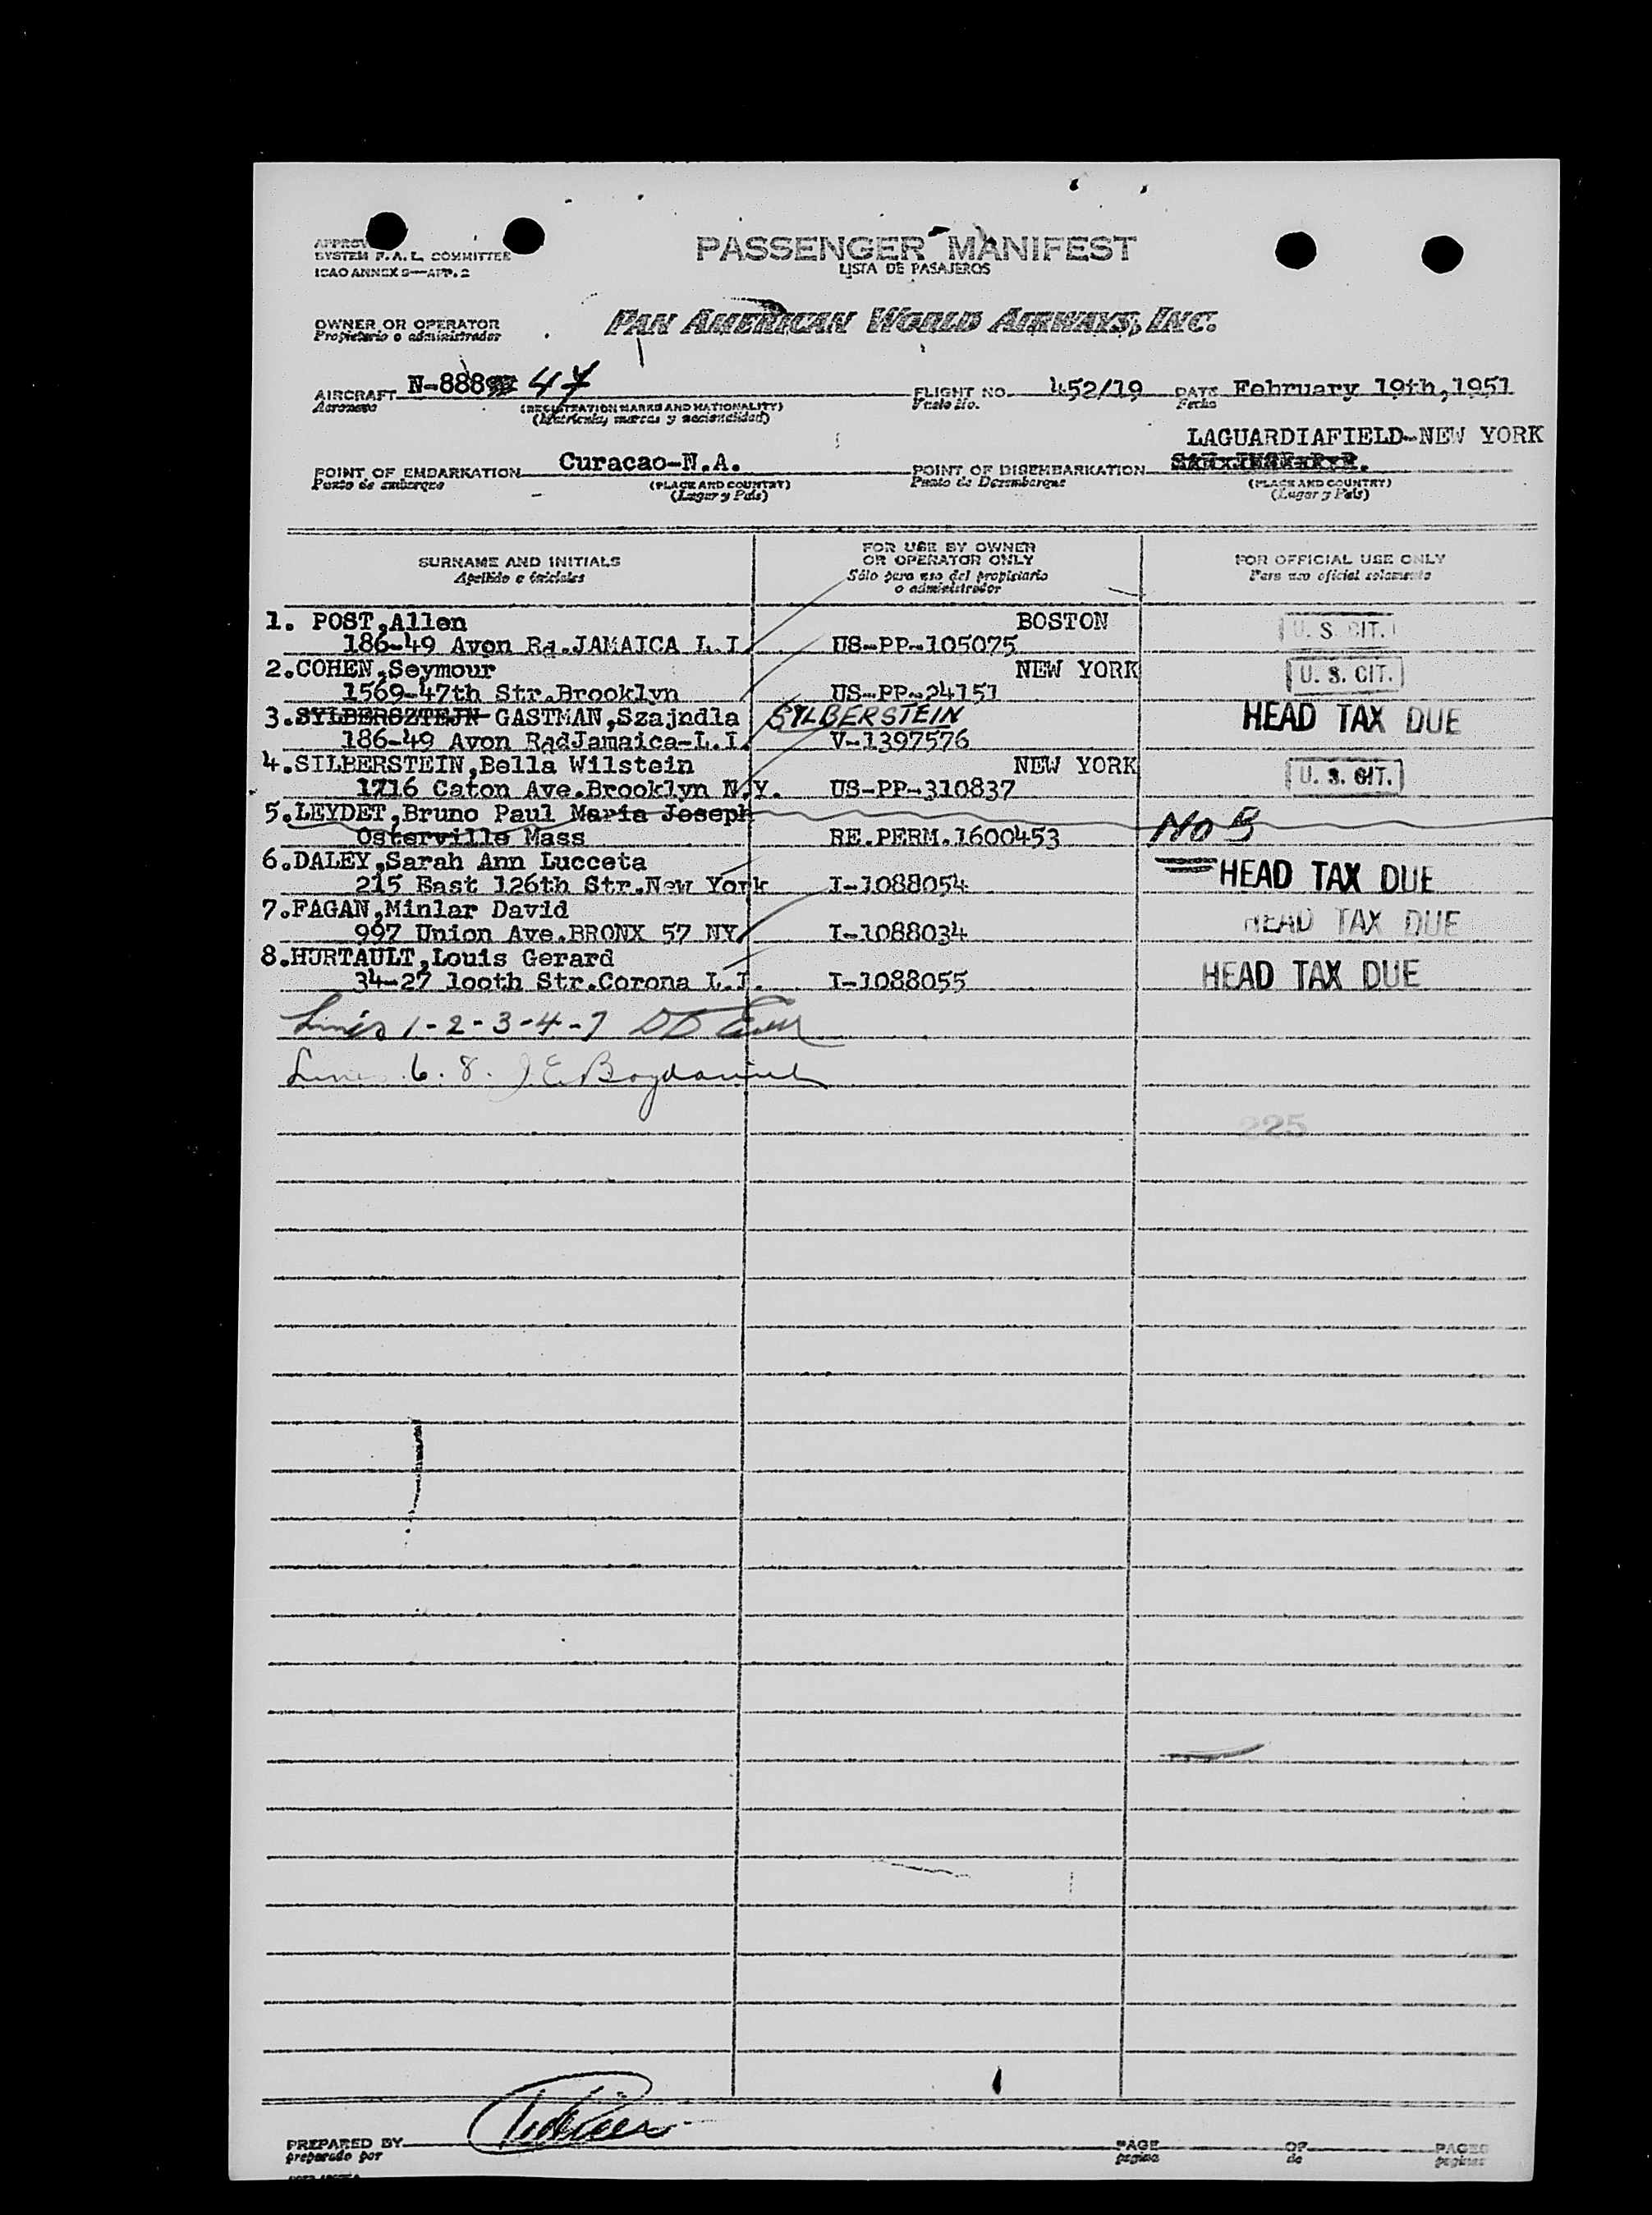 SYSTEM F.A.L. COMMITTEE
ICAO ANNEX 9—APP. 2
PASSENGER MANIFEST
LISTA DE PASAJEROS
OWNER OR OPERATOR
Propietario o administrador
PAN AMERICAN WORLD AIRWAYS, INC.
AIRCRAFT N-888 47 FLIGHT NO. 452/19 DATE February 19th,1951
Aeronave (REGISTRATION MARKS AND NATIONALITY) Vuelo No. Fecha
(Matrícula, marcas y nacionalidad)
LAGUARDIAFIELD-NEW YORK
POINT OF EMBARKATION Curacao-N.A. POINT OF DISEMBARKATION
Punto de embarque (PLACE AND COUNTRY) Punto de Desembarque (PLACE AND COUNTRY)
(Lugar y País) (Lugar y País)
SURNAME AND INITIALS FOR USE BY OWNER OR OPERATOR ONLY FOR OFFICIAL USE ONLY
Apellido e iniciales Sólo para uso del propietario o administrador Para uso oficial solamente
1. POST,Allen BOSTON U. S. CIT.
186-49 Avon Rd.JAMAICA L.I. US-PP-105075
2.COHEN,Seymour NEW YORK U. S. CIT.
1569-47th Str.Brooklyn US-PP-24151
3.SYLBERSZTEJN GASTMAN,Szajndla SYLBERSTEIN HEAD TAX DUE
186-49 Avon RadJamaica-L.I. V-1397576
4.SILBERSTEIN,Bella Wilstein NEW YORK U. S. CIT.
1716 Caton Ave.Brooklyn N.Y. US-PP-310837
5.LEYDET,Bruno Paul Maria Joseph No B
Osterville Mass RE.PERM.1600453
6.DALEY,Sarah Ann Lucceta HEAD TAX DUE
215 East 126th Str.New York I-1088054
7.FAGAN,Minlar David HEAD TAX DUE
997 Union Ave.BRONX 57 NY. I-1088034
8.HURTAULT,Louis Gerard HEAD TAX DUE
34-27 100th Str.Corona L.I. I-1088055
Lines 1-2-3-4-7
Lines 6. 8.
225
PREPARED BY PAGE OF PAGES
preparado por página de páginas